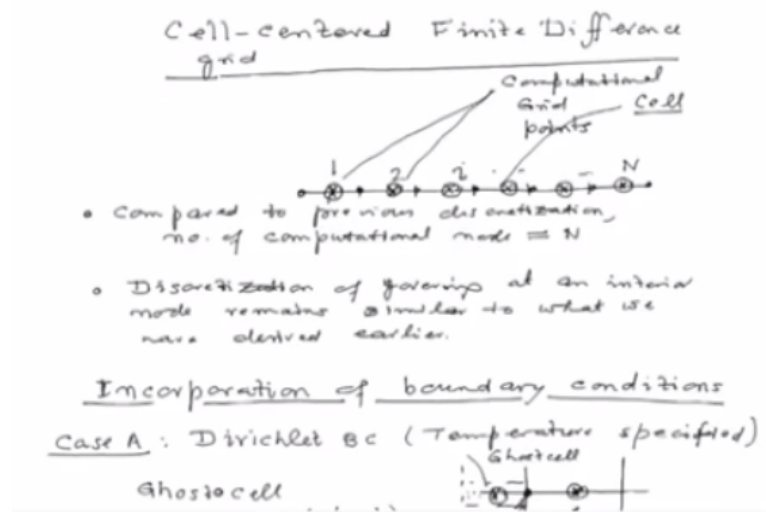 Cell-centered Finite Difference
grid
Computational
Grid
points
Cell
1 2 i N
• Compared to previous discretization,
no. of computational node = N
• Discretization of governing at an interior
node remains similar to what we
have derived earlier.
Incorporation of boundary conditions
Case A : Dirichlet BC (Temperature specified)
Ghost cell
Ghost cell